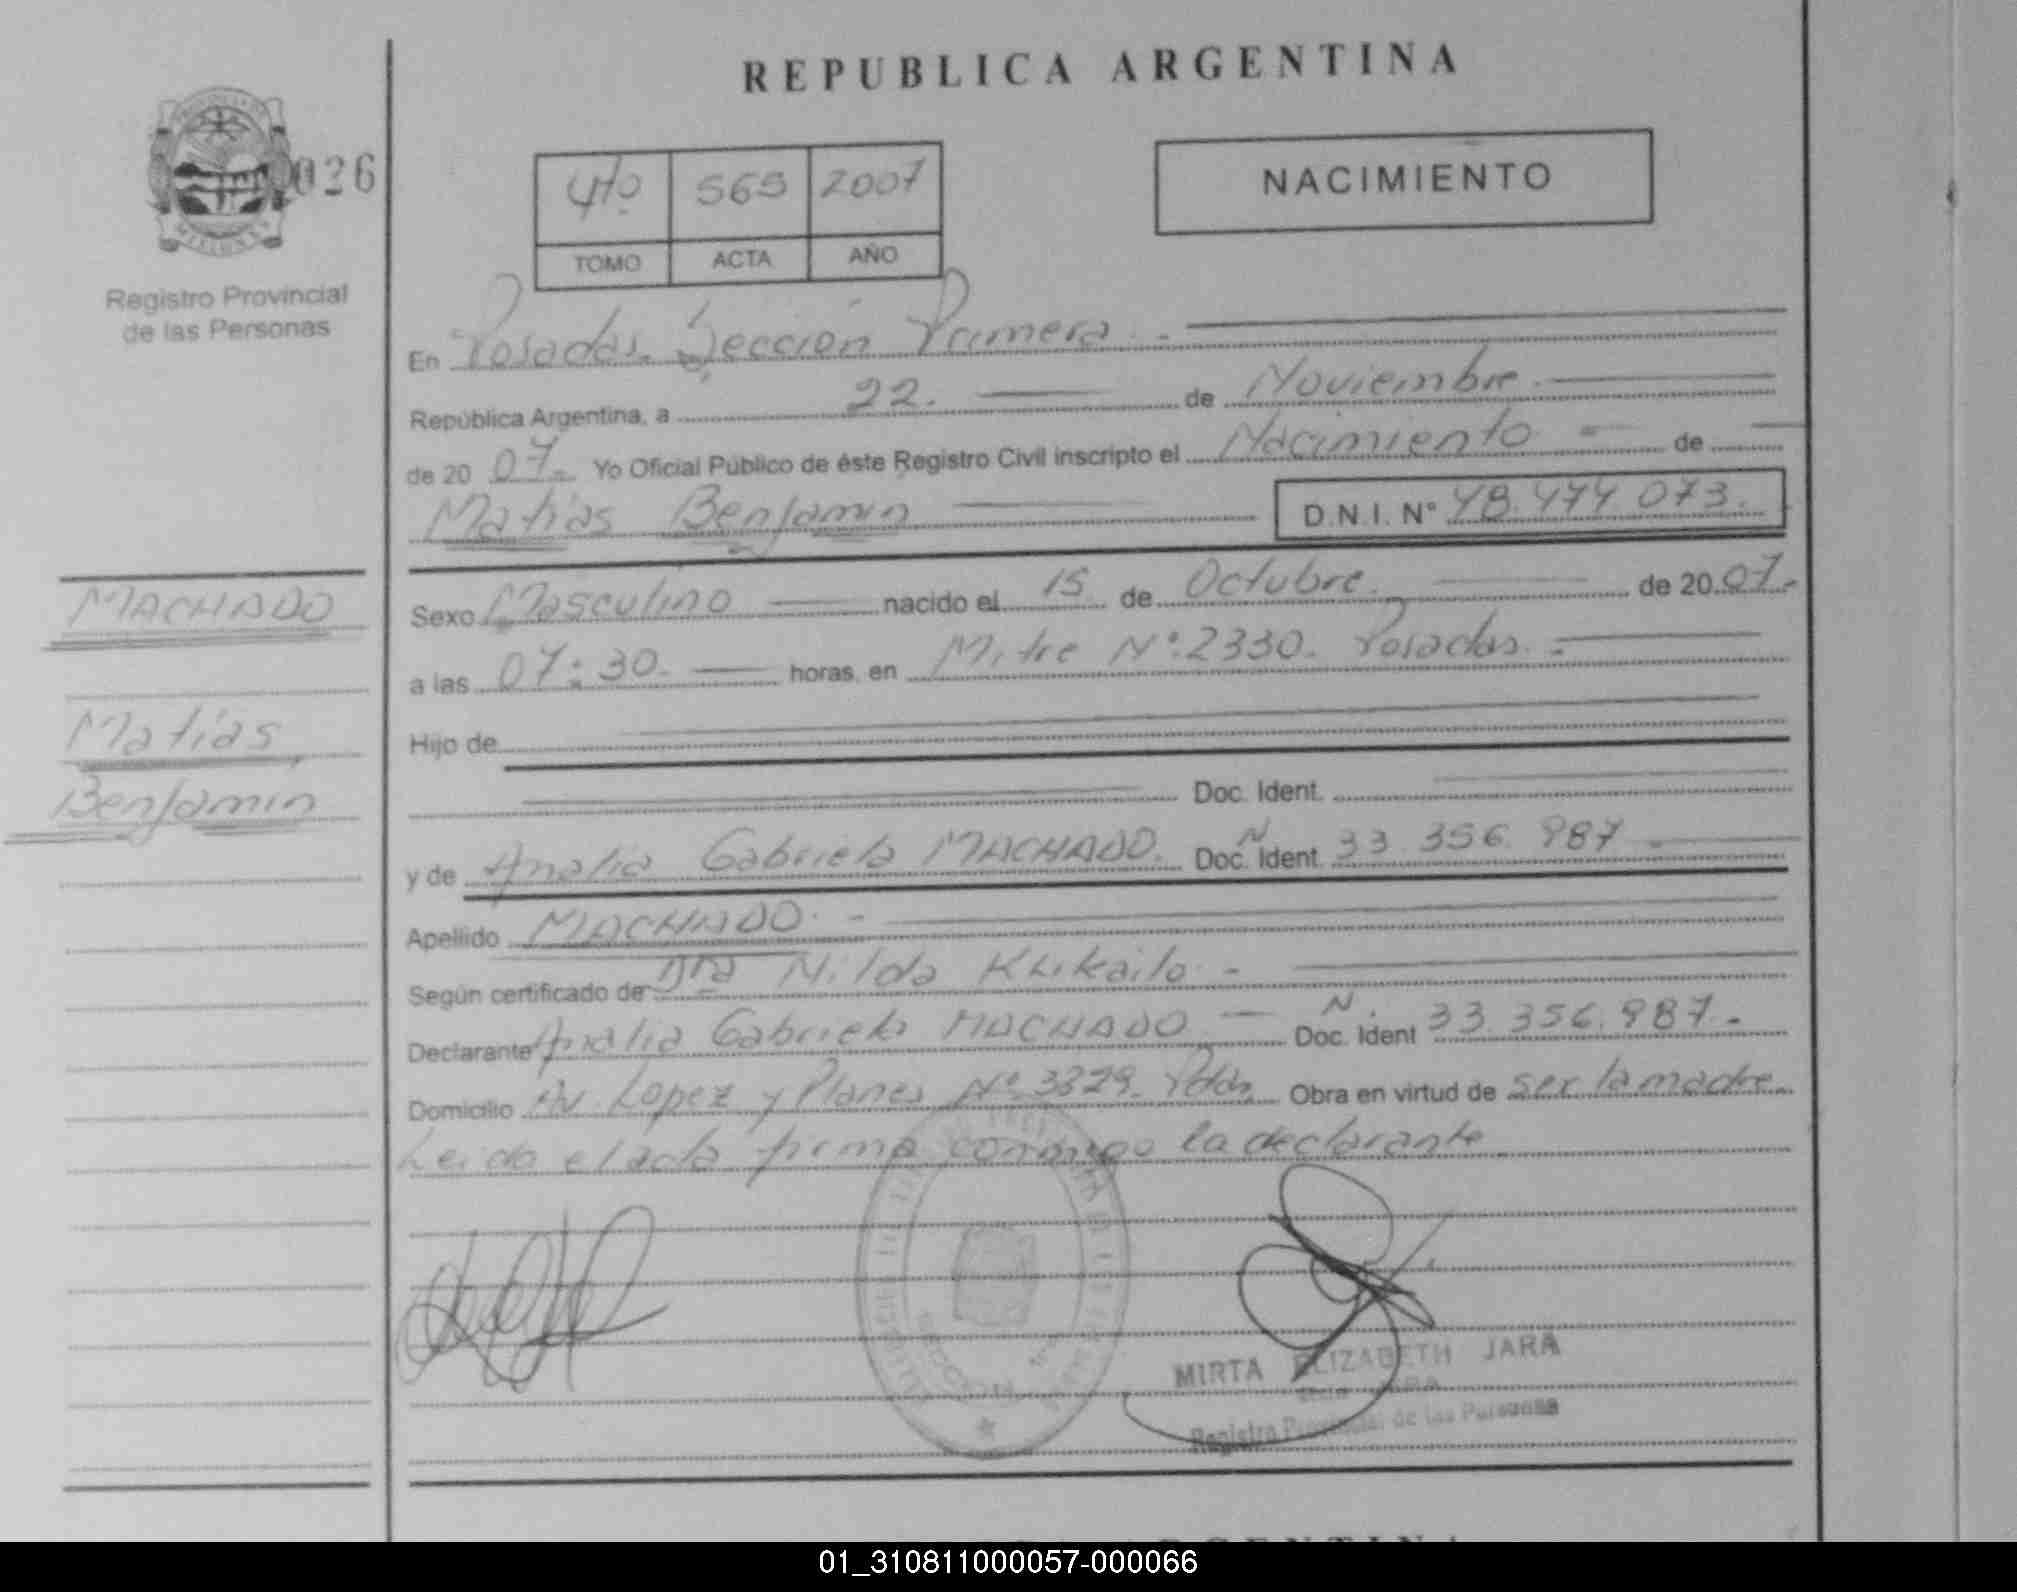 REPUBLICA ARGENTINA
026
4to 565 2007
TOMO ACTA AÑO
NACIMIENTO
Registro Provincial
de las Personas
En Posadas. Sección Primera. -
República Argentina, a 22. de Noviembre.
de 20 07. Yo Oficial Público de éste Registro Civil inscripto el Nacimiento = de
Matías Benjamin D.N.I. N° 48.474.073.
MACHADO
Matías
Benjamin
Sexo Masculino nacido el 15 de Octubre. de 20 07.-
a las 07:30. horas, en Mitre N°:2330. Posadas. =
Hijo de
Doc. Ident.
y de Analia Gabriela MACHADO. Doc. Ident. N 33.356.987
Apellido MACHADO. -
Según certificado de Dra Nilda -
Declarante Analia Gabriela MACHADO - Doc. Ident N. 33.356.987.-
Domicilio Av. Lopez y Planes N° 3329. Pdas. Obra en virtud de ser la madre
Leida el acta firma conmigo la declarante
MIRTA ELIZABETH JARA
Registro Provincial de las Personas
01_310811000057-000066